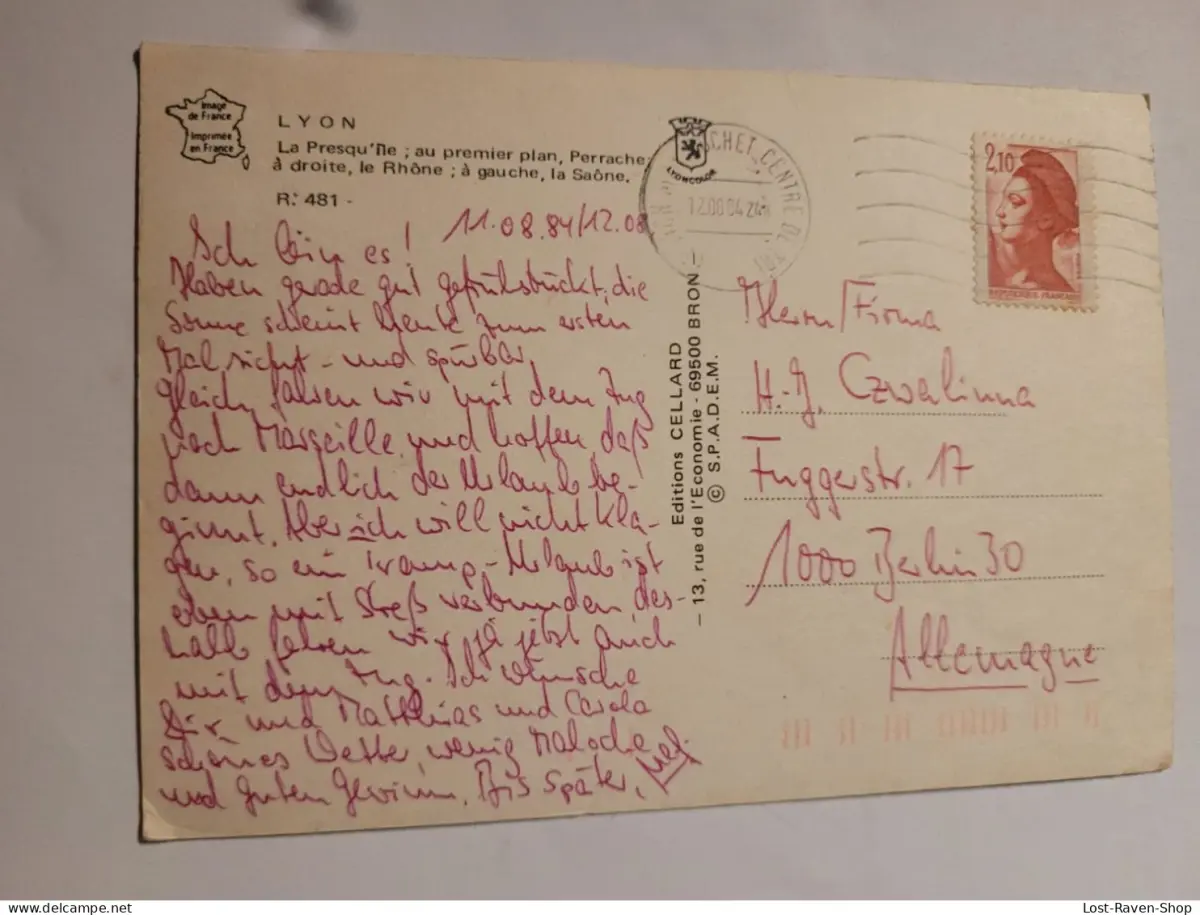 Image
de France
Imprimée
en France
LYON
La Presqu'île ; au premier plan, Perrache,
à droite, le Rhône ; à gauche, la Saône.
R: 481 -
11.08.84/12.08
Ich bin es!
Haben gerade gut gefrühstückt, die
Sonne scheint heute zum ersten
Mal, sicht- und spürbar,
gleich fahren wir mit dem Zug
nach Marseille und hoffen, daß
dann endlich der Urlaub be-
ginnt. Aber ich will nicht kla-
gen, so ein Tramp-Urlaub ist
eben mit Streß verbunden, des-
halb fahren wir ja jetzt auch
mit dem Zug. Ich wünsche
Dir und Matthias und Carola
schönes Wetter, wenig Maloche
und guten Gewinn. Bis später,
Editions CELLARD
– 13, rue de l'Economie - 69500 BRON –
© S.P.A.D.E.M.
LYONCOLOR
CENTRE
2,10
Herrn/Firma
H.-J. Czwalinna
Fuggerstr. 17
1000 Berlin 30
Allemagne
Lost-Raven-Shop